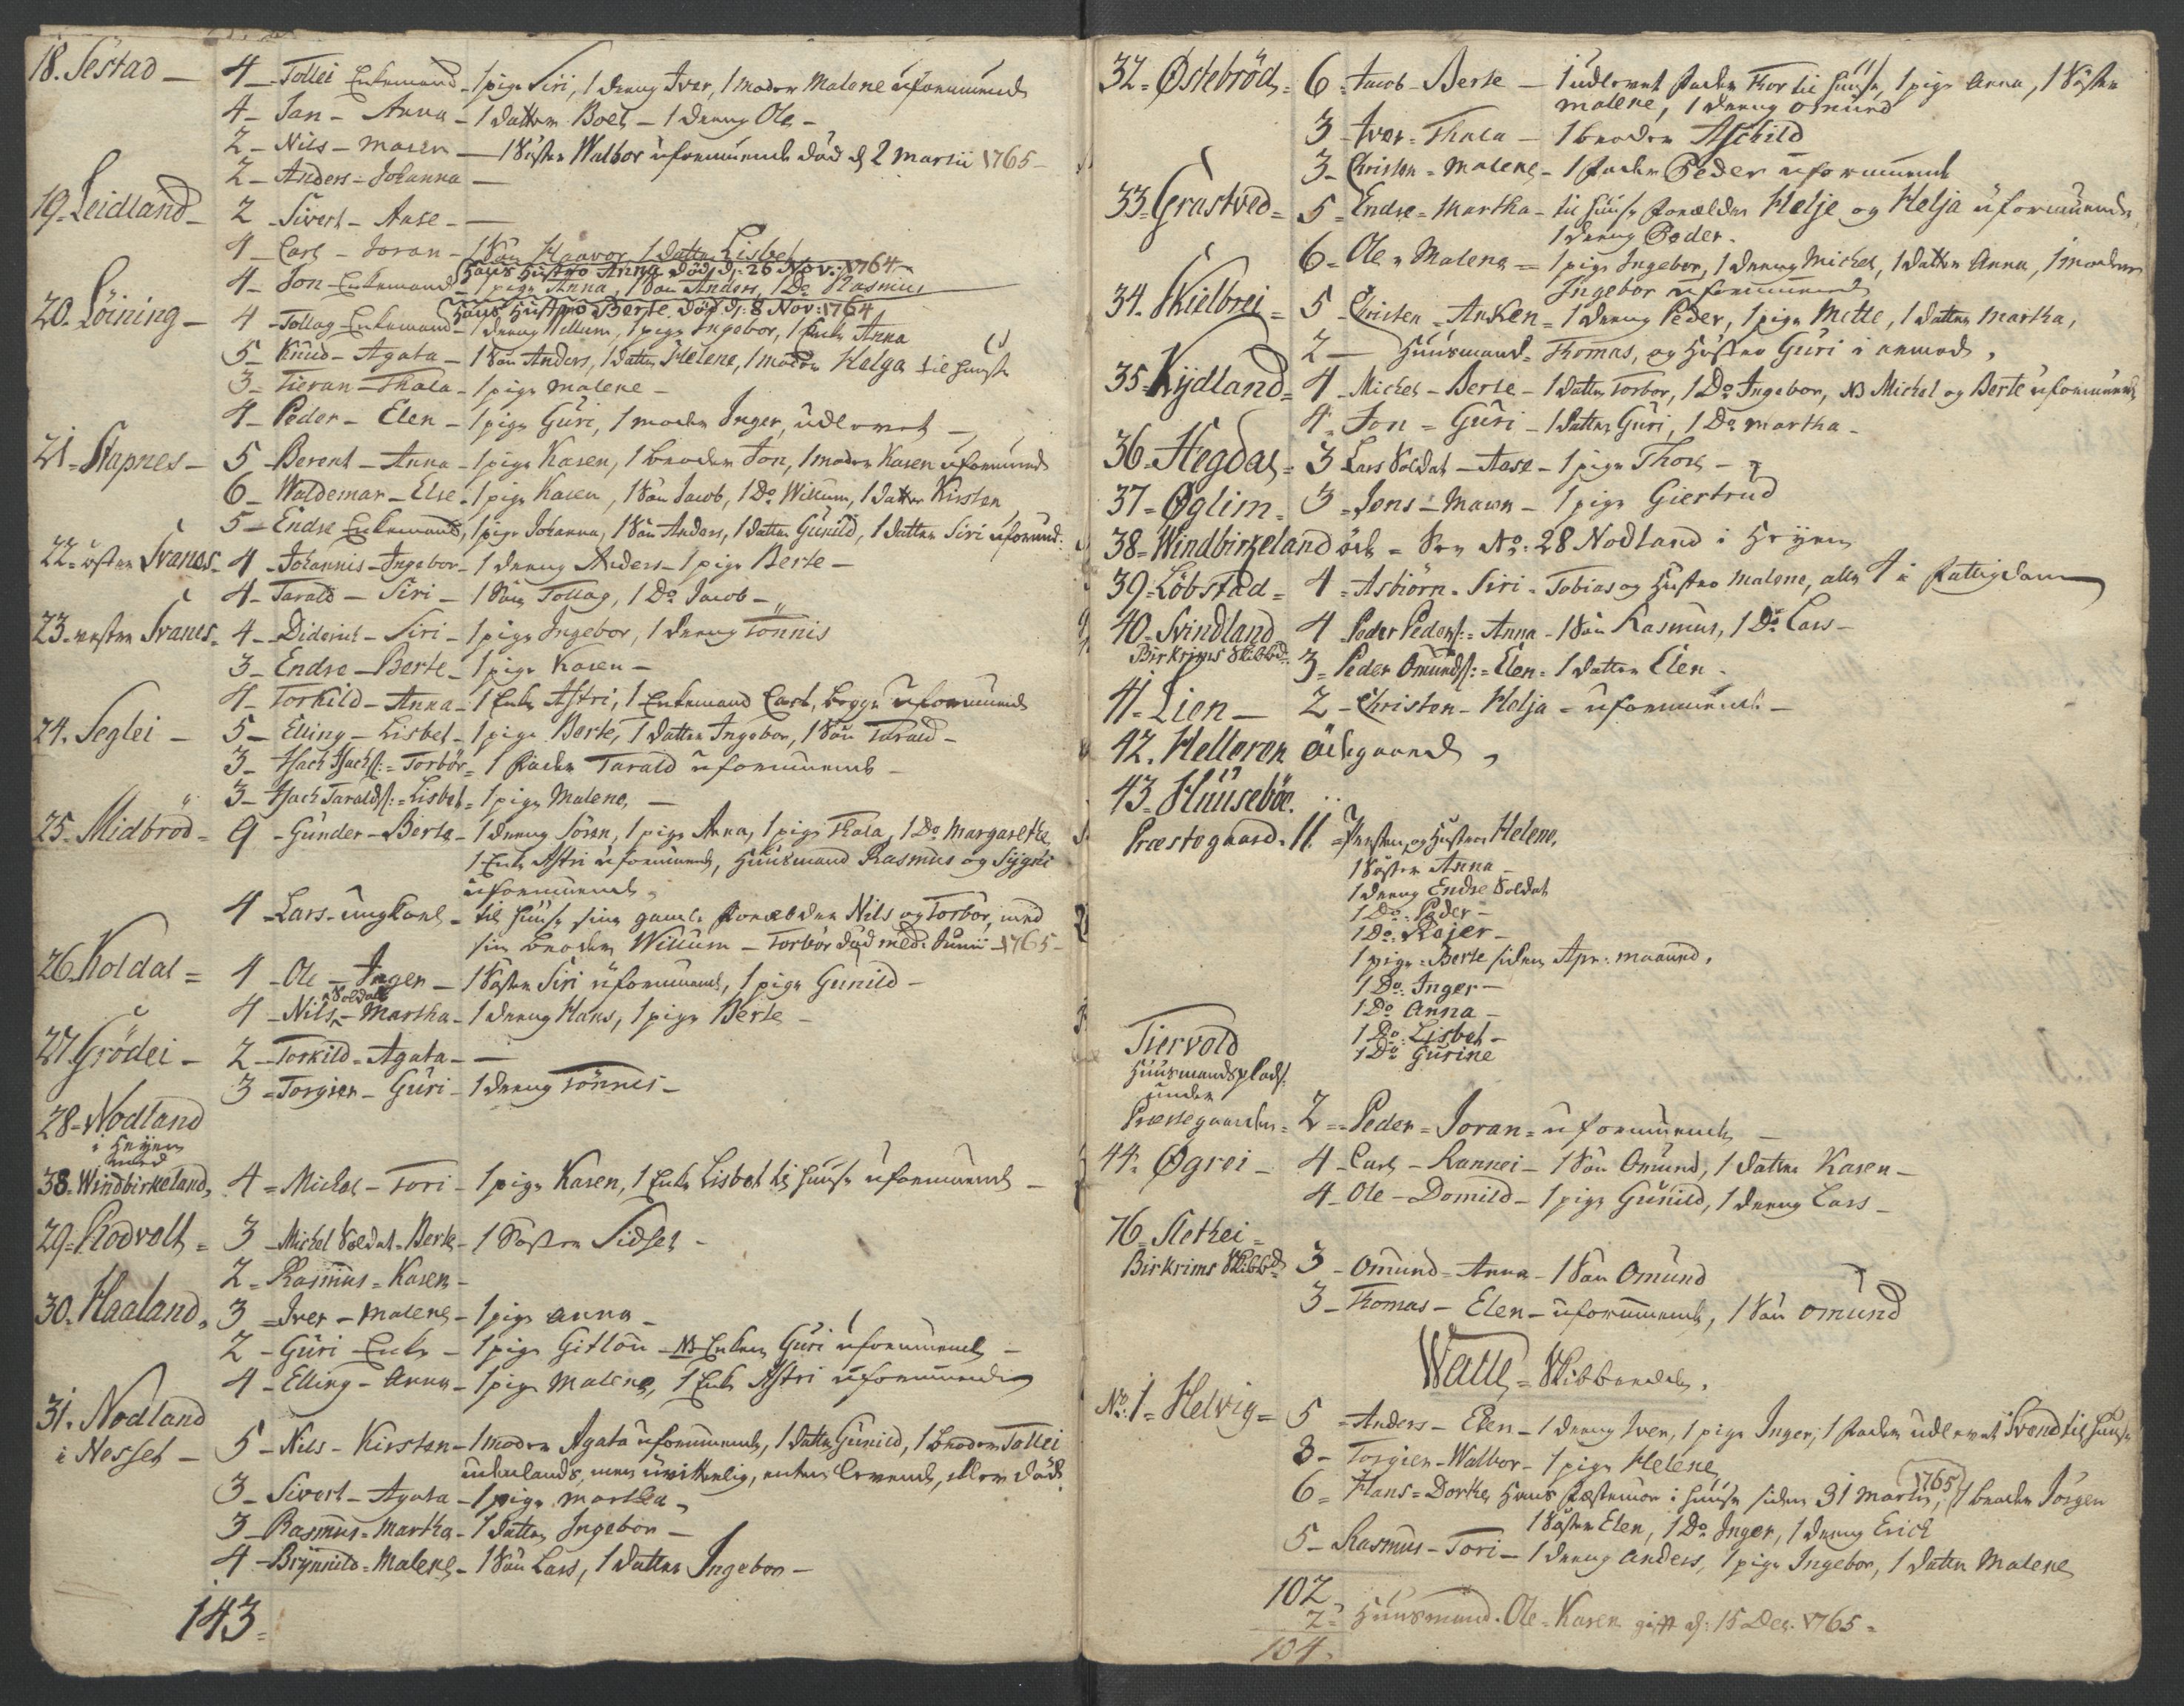 18. Sestad — 4 — Tollei Enkemand — 1 pige Siri, 1 dreng Iver, 1 moder Malene uformuende
4 — Jan — Anna — 1 datter Boel — 1 dreng Ole —
2 — Nils — Maren — 1 Søster Walbor uformuende död d 2 Martii 1765 —
2 — Anders — Johanna —
19. Leidland — 2 — Sivert — Aase —
4 — Carl — Joran — 1 Sön Haavor 1 datter Lisbet
Hans Hustro Anna död d: 26 Nov: 1764
4 — Jon Enkemand — 1 pige Anna, 1 Sön Anders, 1 Do Rasmus
Hans Hustro Berte död d: 8 Nov: 1764
20. Löining — 4 — Tollag Enkemand — 1 dreng Villum, 1 pige Ingebor, 1 Enke Anna
5 — Knud — Agata — 1 Sön Anders, 1 datter Helene, 1 moder Helga til Huuse
3 — Tieran — Thala — 1 pige Malene —
4 — Peder — Elen — 1 pige Guri, 1 moder Inger, udlevet —
21. Stapnes — 5 — Berent — Anna — 1 pige Karen, 1 broder Jon, 1 moder Karen uformuende
6 — Woldemar — Else — 1 pige Karen, 1 Sön Jacob, 1 Do Willum, 1 datter Kirsten
5 — Endre Enkemand, 1 pige Johanna, 1 Sön Anders, 1 datter Gunild, 1 datter Siri uformuend:
22. östre Svanes — 4 — Johannis — Ingebor — 1 dreng Anders — 1 pige Berte —
4 — Tarald — Siri — 1 Sön Tollag, 1 Do Jacob —
23. vestre Svanes — 4 — Diderich — Siri — 1 pige Ingebor, 1 dreng Tönnis
3 — Endre — Berte — 1 pige Karen —
4 — Torkild — Anna — 1 Enke Astri, 1 Enkemand Carl, begge uformuende
24. Seglei — 5 — Elling — Lisbet — 1 pige Berte, 1 datter Ingebor, 1 Sön Tarald —
3 — Isach Isachs: — Torbör — 1 Fader Tarald uformuende —
3 — Isach Taralds: — Lisbet — 1 pige Malene —
25. Midbröd — 9 — Gunder — Berta — 1 dreng Sören, 1 pige Anna, 1 pige Thala, 1 Do Margarethe,
1 Enke Astri uformuende, Huusmand Rasmus og Sygni
uformuende.
4 — Lars — ungkarl — til Huuse sine gamle Forældre Nils og Torbör, med
sin broder Willum — Torbör död med: Junii 1765 —
26. Koldal — 4 — Ole — Inger — 1 Söster Siri uformuende, 1 pige Gunild —
4 — Nils Soldat — Martha — 1 dreng Hans, 1 pige Berte —
27. Grödei — 2 — Torkild — Agata —
3 — Torgier — Guri — 1 dreng Tönnes —
28. Nodland
i Heyen
med
38. Windbirkeland, 4 — Michel — Tori — 1 pige Karen, 1 Enke Lisbet til Huuse uformuende —
29. Rodvolt — 3 — Michel Soldat — Berte — 1 Söster Sidsel —
2 — Rasmus — Karen —
30. Haaland, 3 — Iver — Malene — 1 pige Anna —
2 — Guri Enke — 1 pige Gitlou — NB Enken Guri uformuende —
4 — Elling — Anna — 1 pige Malene, 1 Enke Astri uformuende
31. Nodland
i Nesset — 5 — Nils — Kirsten — 1 moder Agata uformuende, 1 datter Gunild, 1 broder Tollei
udenlands, men uvitterlig, enten levende, eller död.
3 — Sivert — Agata — 1 pige Martha —
3 — Rasmus — Martha — 1 datter Ingebor —
4 — Brynnild — Malene — 1 Sön Lars, 1 datter Ingebor —
143
32. Østebröd — 6 — Jacob — Berte — 1 udlevet Fader Thor til Huuse, 1 pige Anna, 1 Söster
Malene, 1 dreng Omund
3 — Iver — Thala — 1 broder Aschild
3 — Christen — Malene — 1 Fader Peder uformuende
33. Grastved — 5 — Endre — Martha — til Huuse Forældre Helje og Helja uformuende,
1 dreng Peder.
6 — Ole — Malena — 1 pige Ingebor, 1 dreng Michel, 1 datter Anna, 1 moder
Ingebor uformuende
34. Skielbrei — 5 — Christen — Anken — 1 dreng Peder, 1 pige Mette, 1 datter Martha,
2 — Huusmand — Thomas, og Hustro Guri i armod,
35. Rydland — 4 — Michel — Berte — 1 datter Torbor, 1 Do Ingebor, NB Michel og Berte uformuende
4 — Jon — Guri — 1 datter Guri, 1 Do Martha —
36. Hegdal — 3 Lars Soldat — Aase — 1 pige Thore —
37. Øglim — 3 — Jens — Maren — 1 pige Giertrud
38. Windbirkeland öde — See No: 28 Nodland i Heyen
39. Löbstad — 4 — Asbiörn — Siri — Tobias og Hustro Malene, alle 4 i Fattigdom
40. Svindland 4 Peder Peders: — Anna — 1 Sön Rasmus, 1 Do Lars —
Birkrims Skibbd: 3 — Peder Omunds: — Elen — 1 datter Elen —
41. Lien — 2 — Christen — Helja — uformuende —
42. Helleren ödegaard,
43. Huuseböe.
Præstegaard. 11. Præsten, og Hustroe Helene,
1 Söster Anna —
1 dreng Endre Soldat
1 Do: Peder —
1 Do: Rojer —
1 pige: Berte siden Apr: maaned,
1 Do: Inger —
1 Do Anna —
1 Do: Lisbet —
1 Do Gurine
Tiervold
Huusmandsplads
under
Præstegaarden — 2 — Peder — Joran — uformuende —
44. Øgrei — 4 — Carl — Rannei — 1 Sön Omund, 1 datter Karen —
4 — Ole — Domild — 1 pige Gunild, 1 dreng Lars —
76. Slethei —
Birkrims Skibbd: 3 — Omund — Anna — 1 Sön Omund
3 — Thomas — Elen — uformuende, 1 Sön Omund
Walle — Skibbrede.
No: 1. Helvig — 5 — Anders — Elen — 1 dreng Iver, 1 pige Inger, 1 Fader udlevet Svend til Huuse
3 — Torgier — Walbor — 1 pige Helene
6 — Hans — Dorthe, Hans Fæstemöe i Huuse siden 31 Martii, 1765, 1 broder Jörgen
1 Söster Elen, 1 Do Inger, 1 dreng Erich
5 — Rasmus — Tori — 1 dreng Anders, 1 pige Ingebor, 1 datter Malene
102
2 — Huusmand. Ole — Karen gift d: 15 Dec. 1765 —
104.